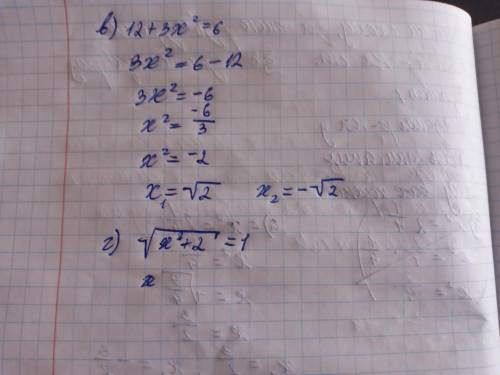 в) 12+3x²=6
3x²=6-12
3x²=-6
x²=-6/3
x²=-2
x₁=√2 x₂=-√2
г) √(x²+2)=1
x